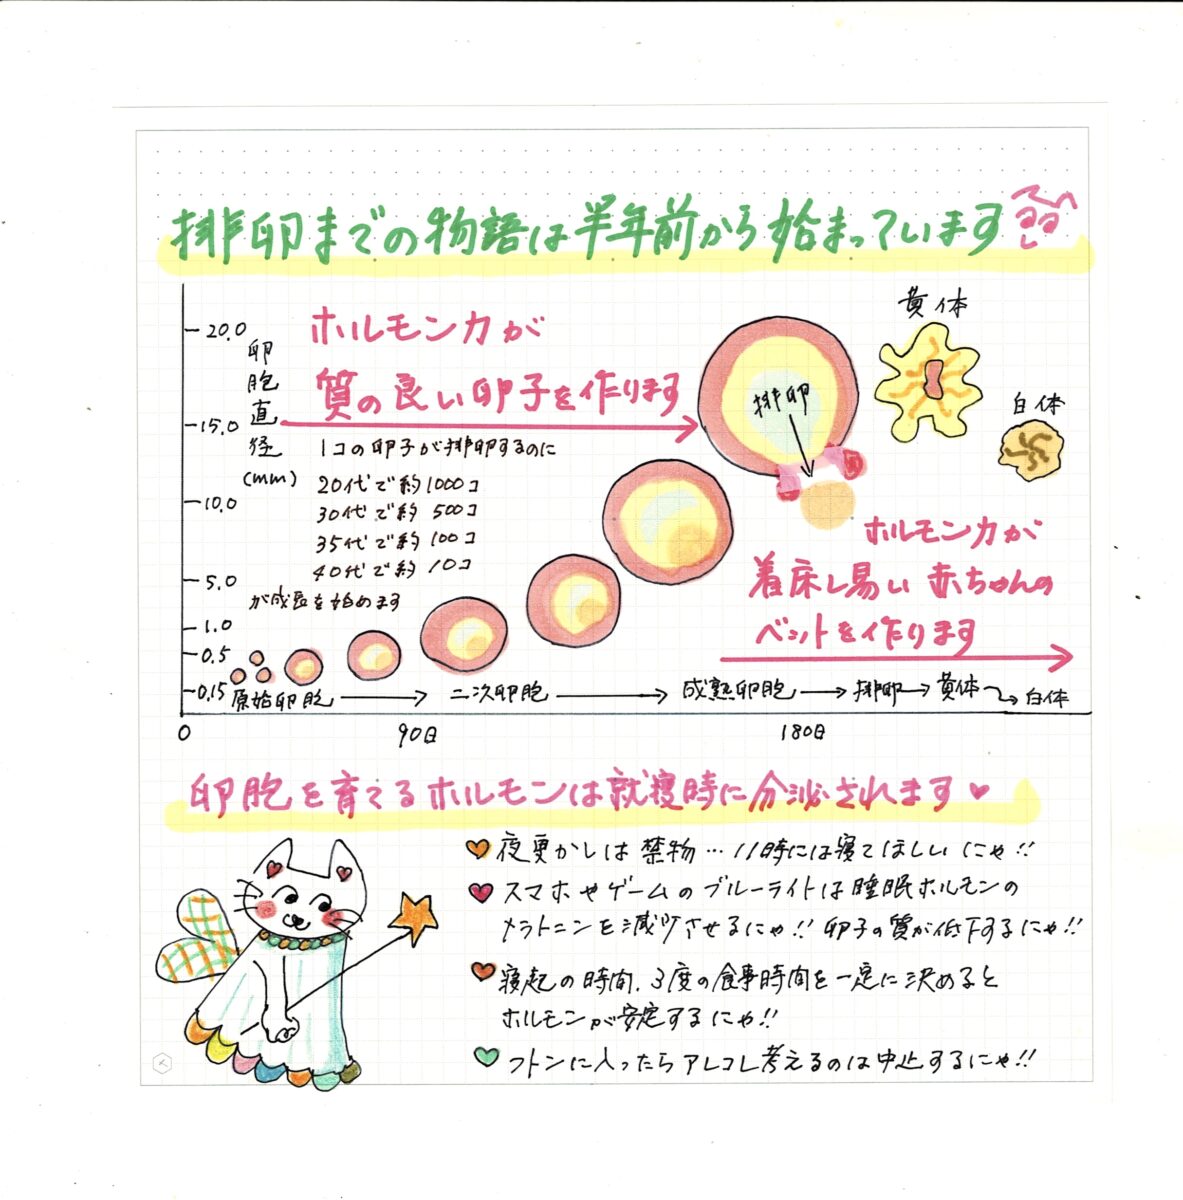 排卵までの物語は半年前から始まっています
20.0
15.0
10.0
5.0
1.0
0.5
0.15
卵胞直径
(mm)
ホルモン力が
質の良い卵子を作ります
1コの卵子が排卵するのに
20代で約1000コ
30代で約500コ
35代で約100コ
40代で約10コ
が成長を始めます
排卵
黄体
白体
ホルモン力が
着床し易い赤ちゃんの
ベットを作ります
原始卵胞
二次卵胞
成熟卵胞
排卵
黄体
白体
0
90日
180日
卵胞を育てるホルモンは就寝時に分泌されます
夜更かしは禁物…11時には寝てほしいにゃ!!
スマホやゲームのブルーライトは睡眠ホルモンの
メラトニンを減少させるにゃ!! 卵子の質が低下するにゃ!!
寝起の時間、3度の食事時間を一定に決めると
ホルモンが安定するにゃ!!
フトンに入ったらアレコレ考えるのは中止するにゃ!!